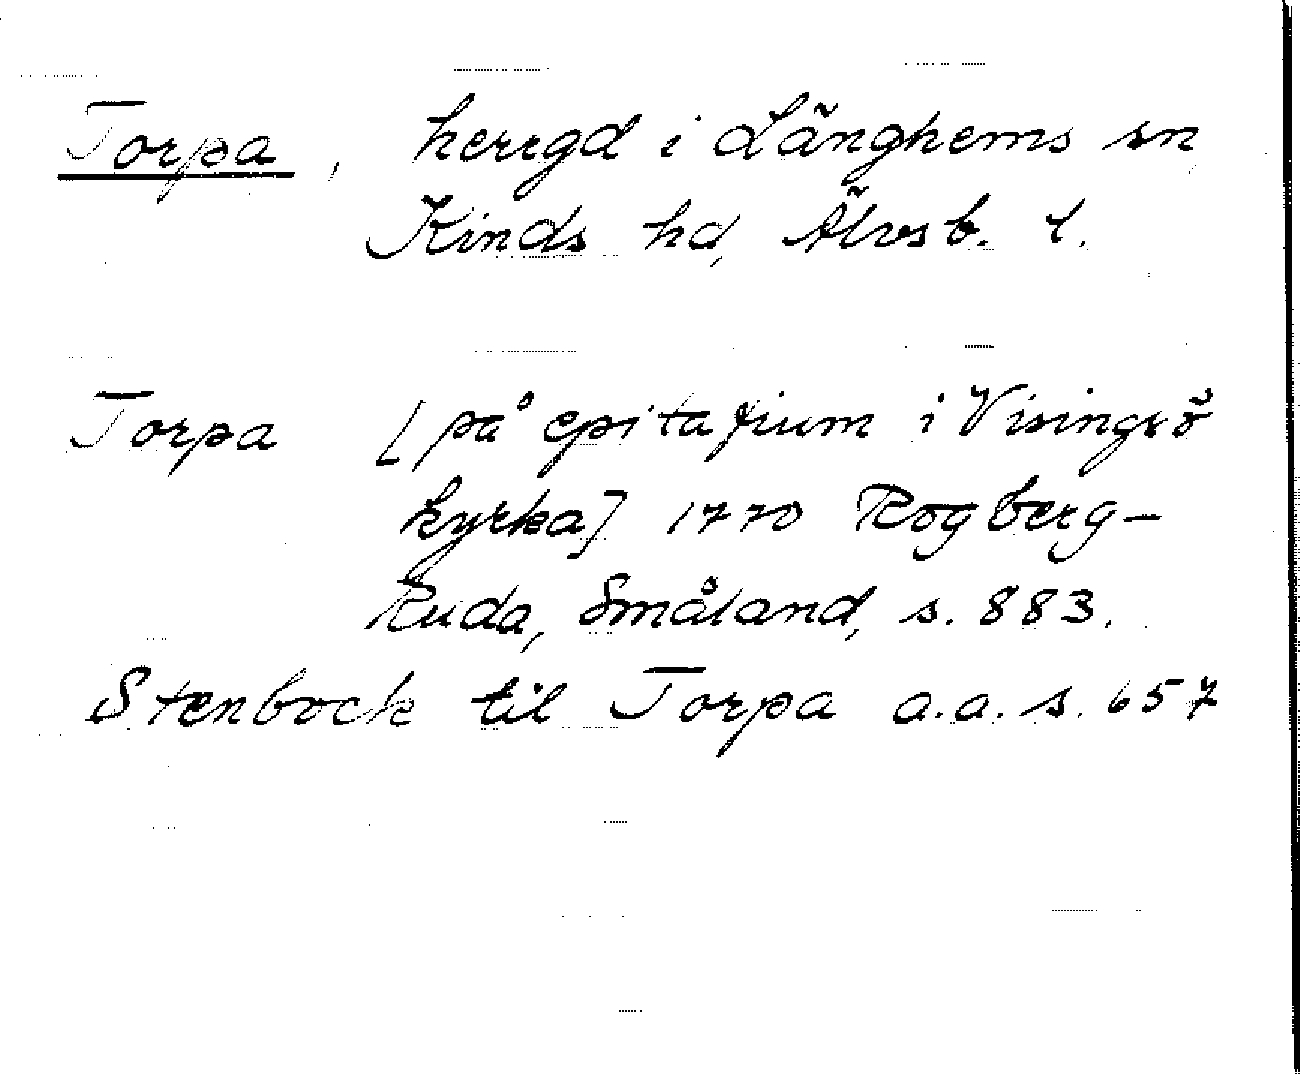 Torpa, herrgd i Länghems sn
Kinds hd, Älvsb. l.
Torpa [på epitafium i Visingsö
kyrka] 1770 Rogberg-
Ruda, Småland, s. 883.
Stenbock til Torpa a.a. s. 657